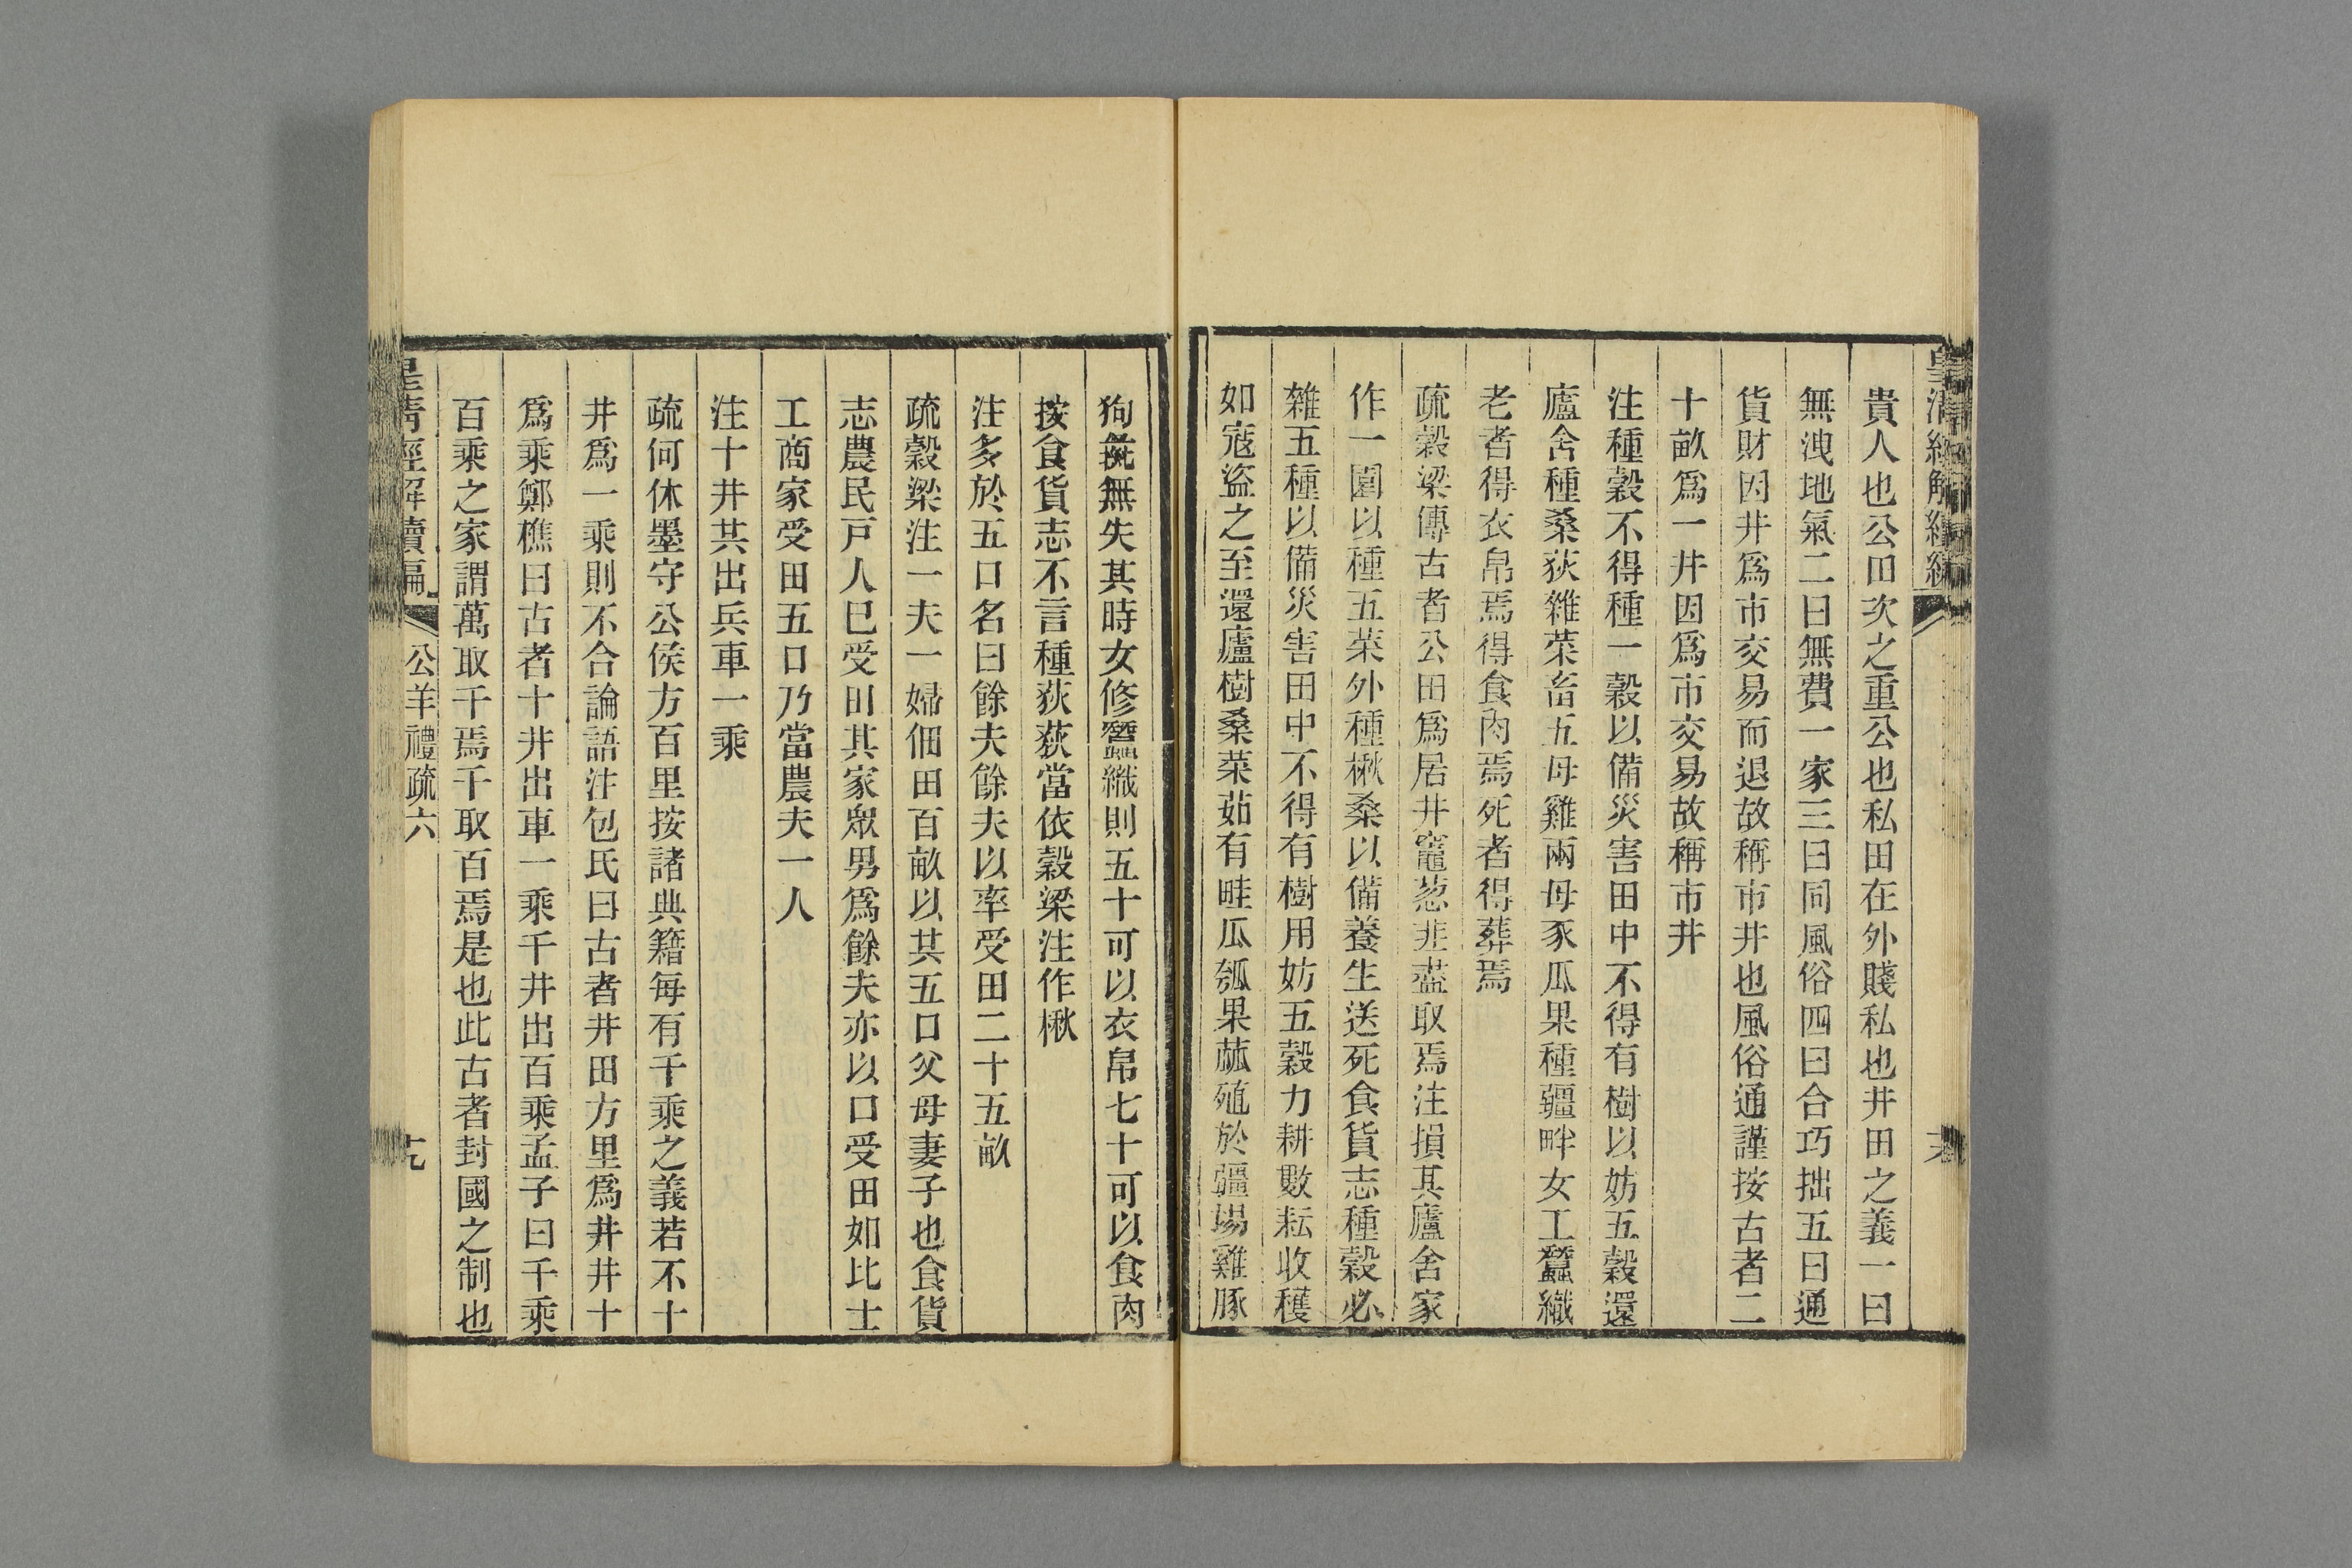 貴人也公田次之重公也私田在外賤私也井田之義一曰
無洩地氣二曰無費一家三曰同風俗四曰合巧拙五曰通
貨財因井爲市交易而退故稱市井也風俗通謹按古者二
十畝爲一井因爲市交易故稱市井
注種穀不得種一穀以備災害田中不得有樹以妨五穀還
廬舍種桑荻雜菜畜五母雞兩母豕瓜果種疆畔女工蠶織
老者得衣帛焉得食肉焉死者得葬焉
疏穀梁傳古者公田爲居井竈葱韭盡取焉注損其廬舍家
作一園以種五菜外種楸桑以備養生送死食貨志種穀必
雜五種以備災害田中不得有樹用妨五穀力耕數耘收穫
如寇盜之至還廬樹桑菜茹有畦瓜瓠果蓏殖於疆埸雞豚
狗彘無失其時女修蠶織則五十可以衣帛七十可以食肉
按食貨志不言種荻荻當依穀梁注作楸
注多於五口名曰餘夫餘夫以率受田二十五畝
疏穀梁注一夫一婦佃田百畝以其五口父母妻子也食貨
志農民戸人巳受田其家眾男爲餘夫亦以口受田如比士
工商家受田五口乃當農夫一人
注十井共出兵車一乘
疏何休墨守公侯方百里按諸典籍每有千乘之義若不十
井爲一乘則不合論語注包氏曰古者井田方里爲井井十
爲乘鄭樵曰古者十井出車一乘千井出百乘孟子曰千乘
百乘之家謂萬取千焉千取百焉是也此古者封國之制也
皇清經解續編 公羊禮疏六